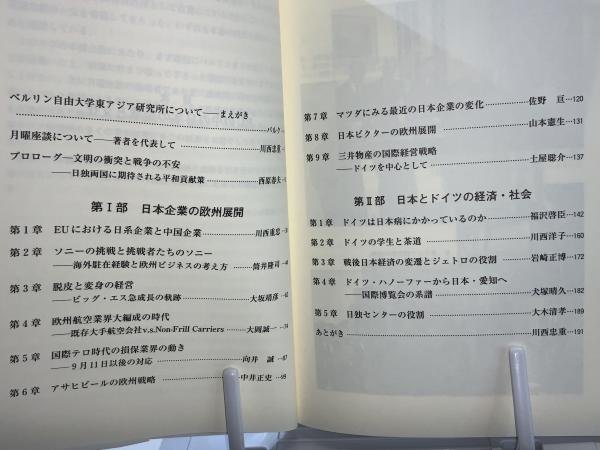 ベルリン自由大学東アジア研究所について——まえがき
……バルト
月曜座談について——著者を代表して……川西重忠
プロローグ—文明の衝突と戦争の不安
——日独両国に期待される平和貢献策……西原春夫
第Ⅰ部 日本企業の欧州展開
第1章 EUにおける日系企業と中国企業……川西重忠
第2章 ソニーの挑戦と挑戦者たちのソニー
——海外駐在経験と欧州ビジネスの考え方……筒井隆司
第3章 脱皮と変身の経営
——ビッグ・エス急成長の軌跡……大坂靖彦
第4章 欧州航空業界大編成の時代
——既存大手航空会社v.s.Non-Frill Carriers……大岡誠一
第5章 国際テロ時代の損保業界の動き
——9月11日以後の対応……向井 誠
第6章 アサヒビールの欧州戦略……中井正史
第7章 マツダにみる最近の日本企業の変化……佐野 亘…120
第8章 日本ビクターの欧州展開……山本憲生…131
第9章 三井物産の国際経営戦略
——ドイツを中心として……土屋聡介…137
第Ⅱ部 日本とドイツの経済・社会
第1章 ドイツは日本病にかかっているのか……福沢啓臣…142
第2章 ドイツの学生と茶道……川西洋子…160
第3章 戦後日本経済の変遷とジェトロの役割……岩崎正博…172
第4章 ドイツ・ハノーファーから日本・愛知へ
——国際博覧会の系譜……犬塚晴久…182
第5章 日独センターの役割……大木清孝…189
あとがき……川西重忠…191